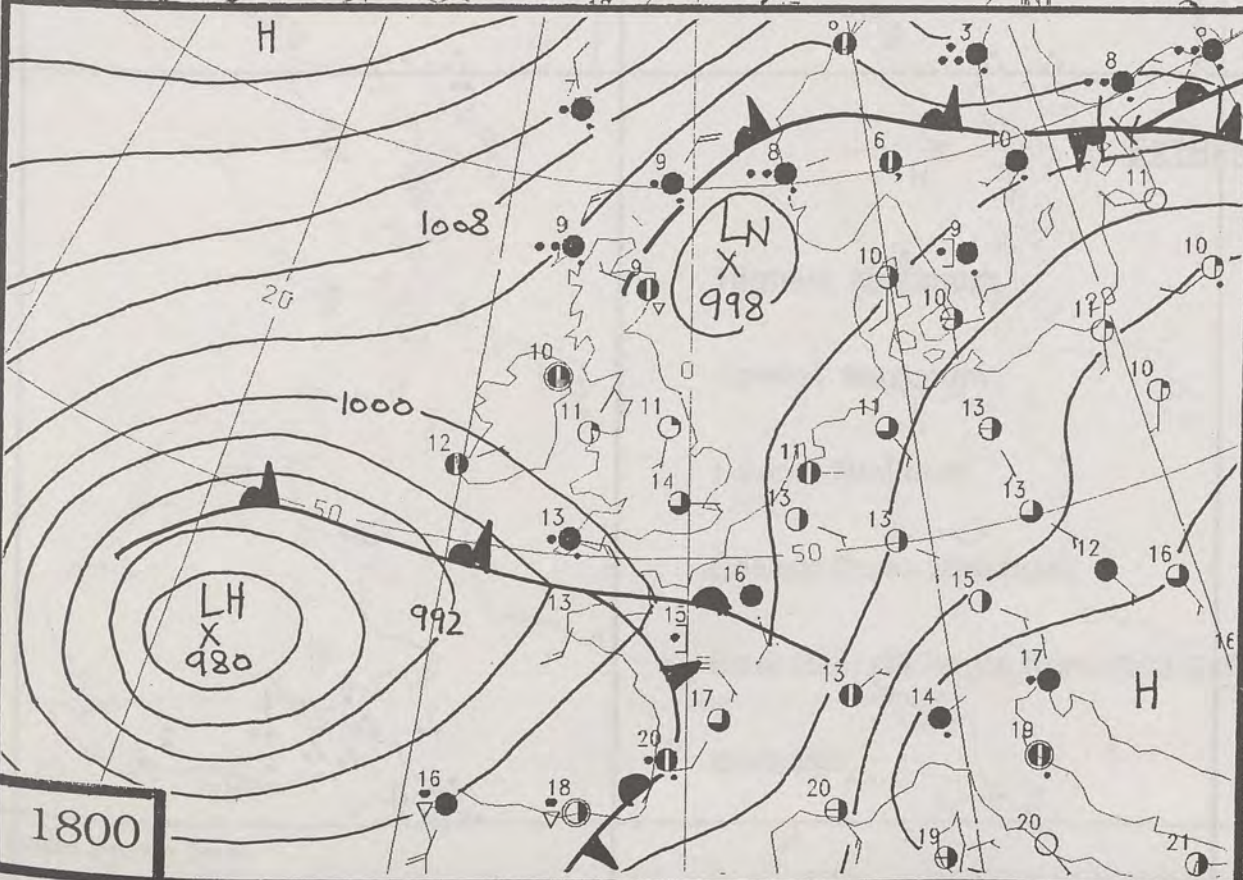 H
3
8
7
9
8
6
10
11
1008
9
LN
X
998
9
10
9
10
10
20
11
10
0
10
1000
11
11
11
13
12
14
11
13
13
50
13
13
50
12
16
LH
X
980
992
13
16
15
15
16
13
17
H
17
14
20
19
16
18
20
1800
19
20
21